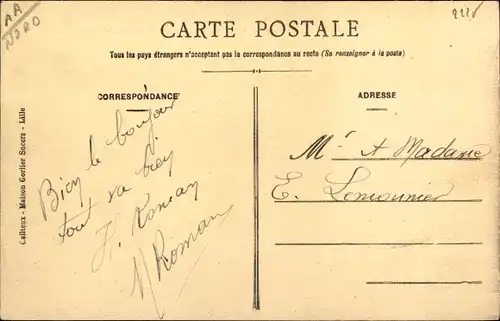 AA
N3R0
2225
CARTE POSTALE
Tous les pays étrangers n'acceptent pas la correspondance au recto (Se renseigner à la poste)
CORRESPONDANCE
ADRESSE
Cailteux - Maison Gorlier Succrs - Lille
Bien le bonjour
tout va bien
F. Roman
M Roman
Mr et Madame
E. Lemonnier